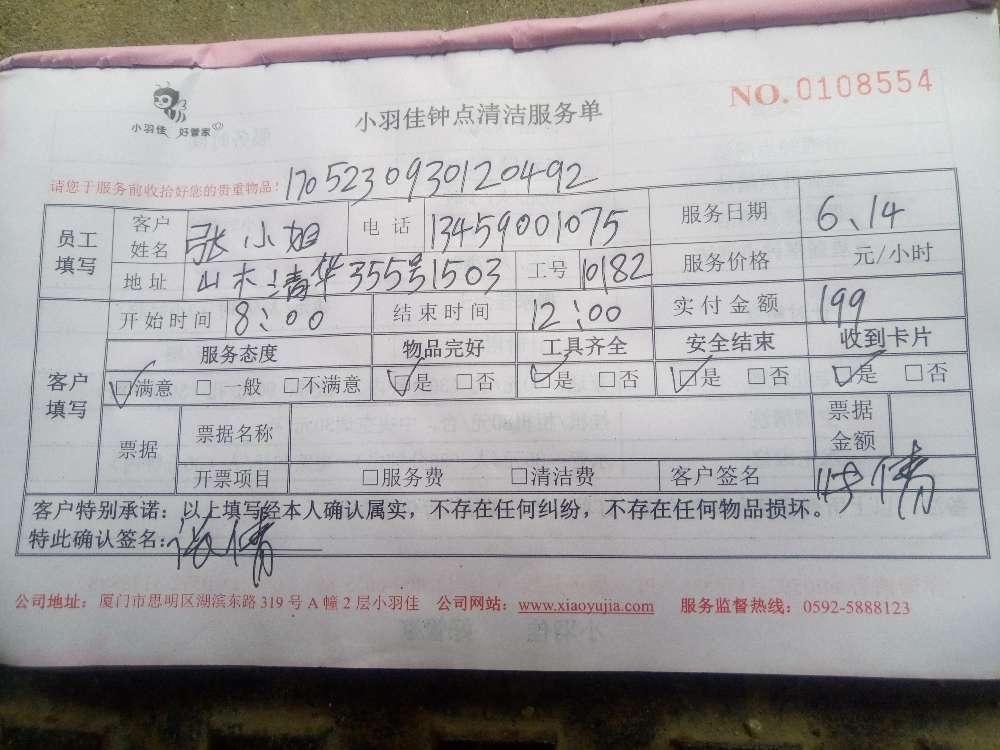 小羽佳 好管家
小羽佳钟点清洁服务单
NO.0108554
请您于服务前收拾好您的贵重物品！ 1705230930120492
员工填写 客户姓名 张小姐 电话 13459001075 服务日期 6、14
地址 山水清华355号1503 工号 10182 服务价格 元/小时
开始时间 8：00 结束时间 12：00 实付金额 199
客户填写 服务态度 物品完好 工具齐全 安全结束 收到卡片
☑满意 □一般 □不满意 ☑是 □否 ☑是 □否 ☑是 □否 ☑是 □否
票据 票据名称 票据金额
开票项目 □服务费 □清洁费 客户签名
客户特别承诺：以上填写经本人确认属实，不存在任何纠纷，不存在任何物品损坏。
特此确认签名：
公司地址：厦门市思明区湖滨东路319号A幢2层小羽佳 公司网站：www.xiaoyujia.com 服务监督热线：0592-5888123